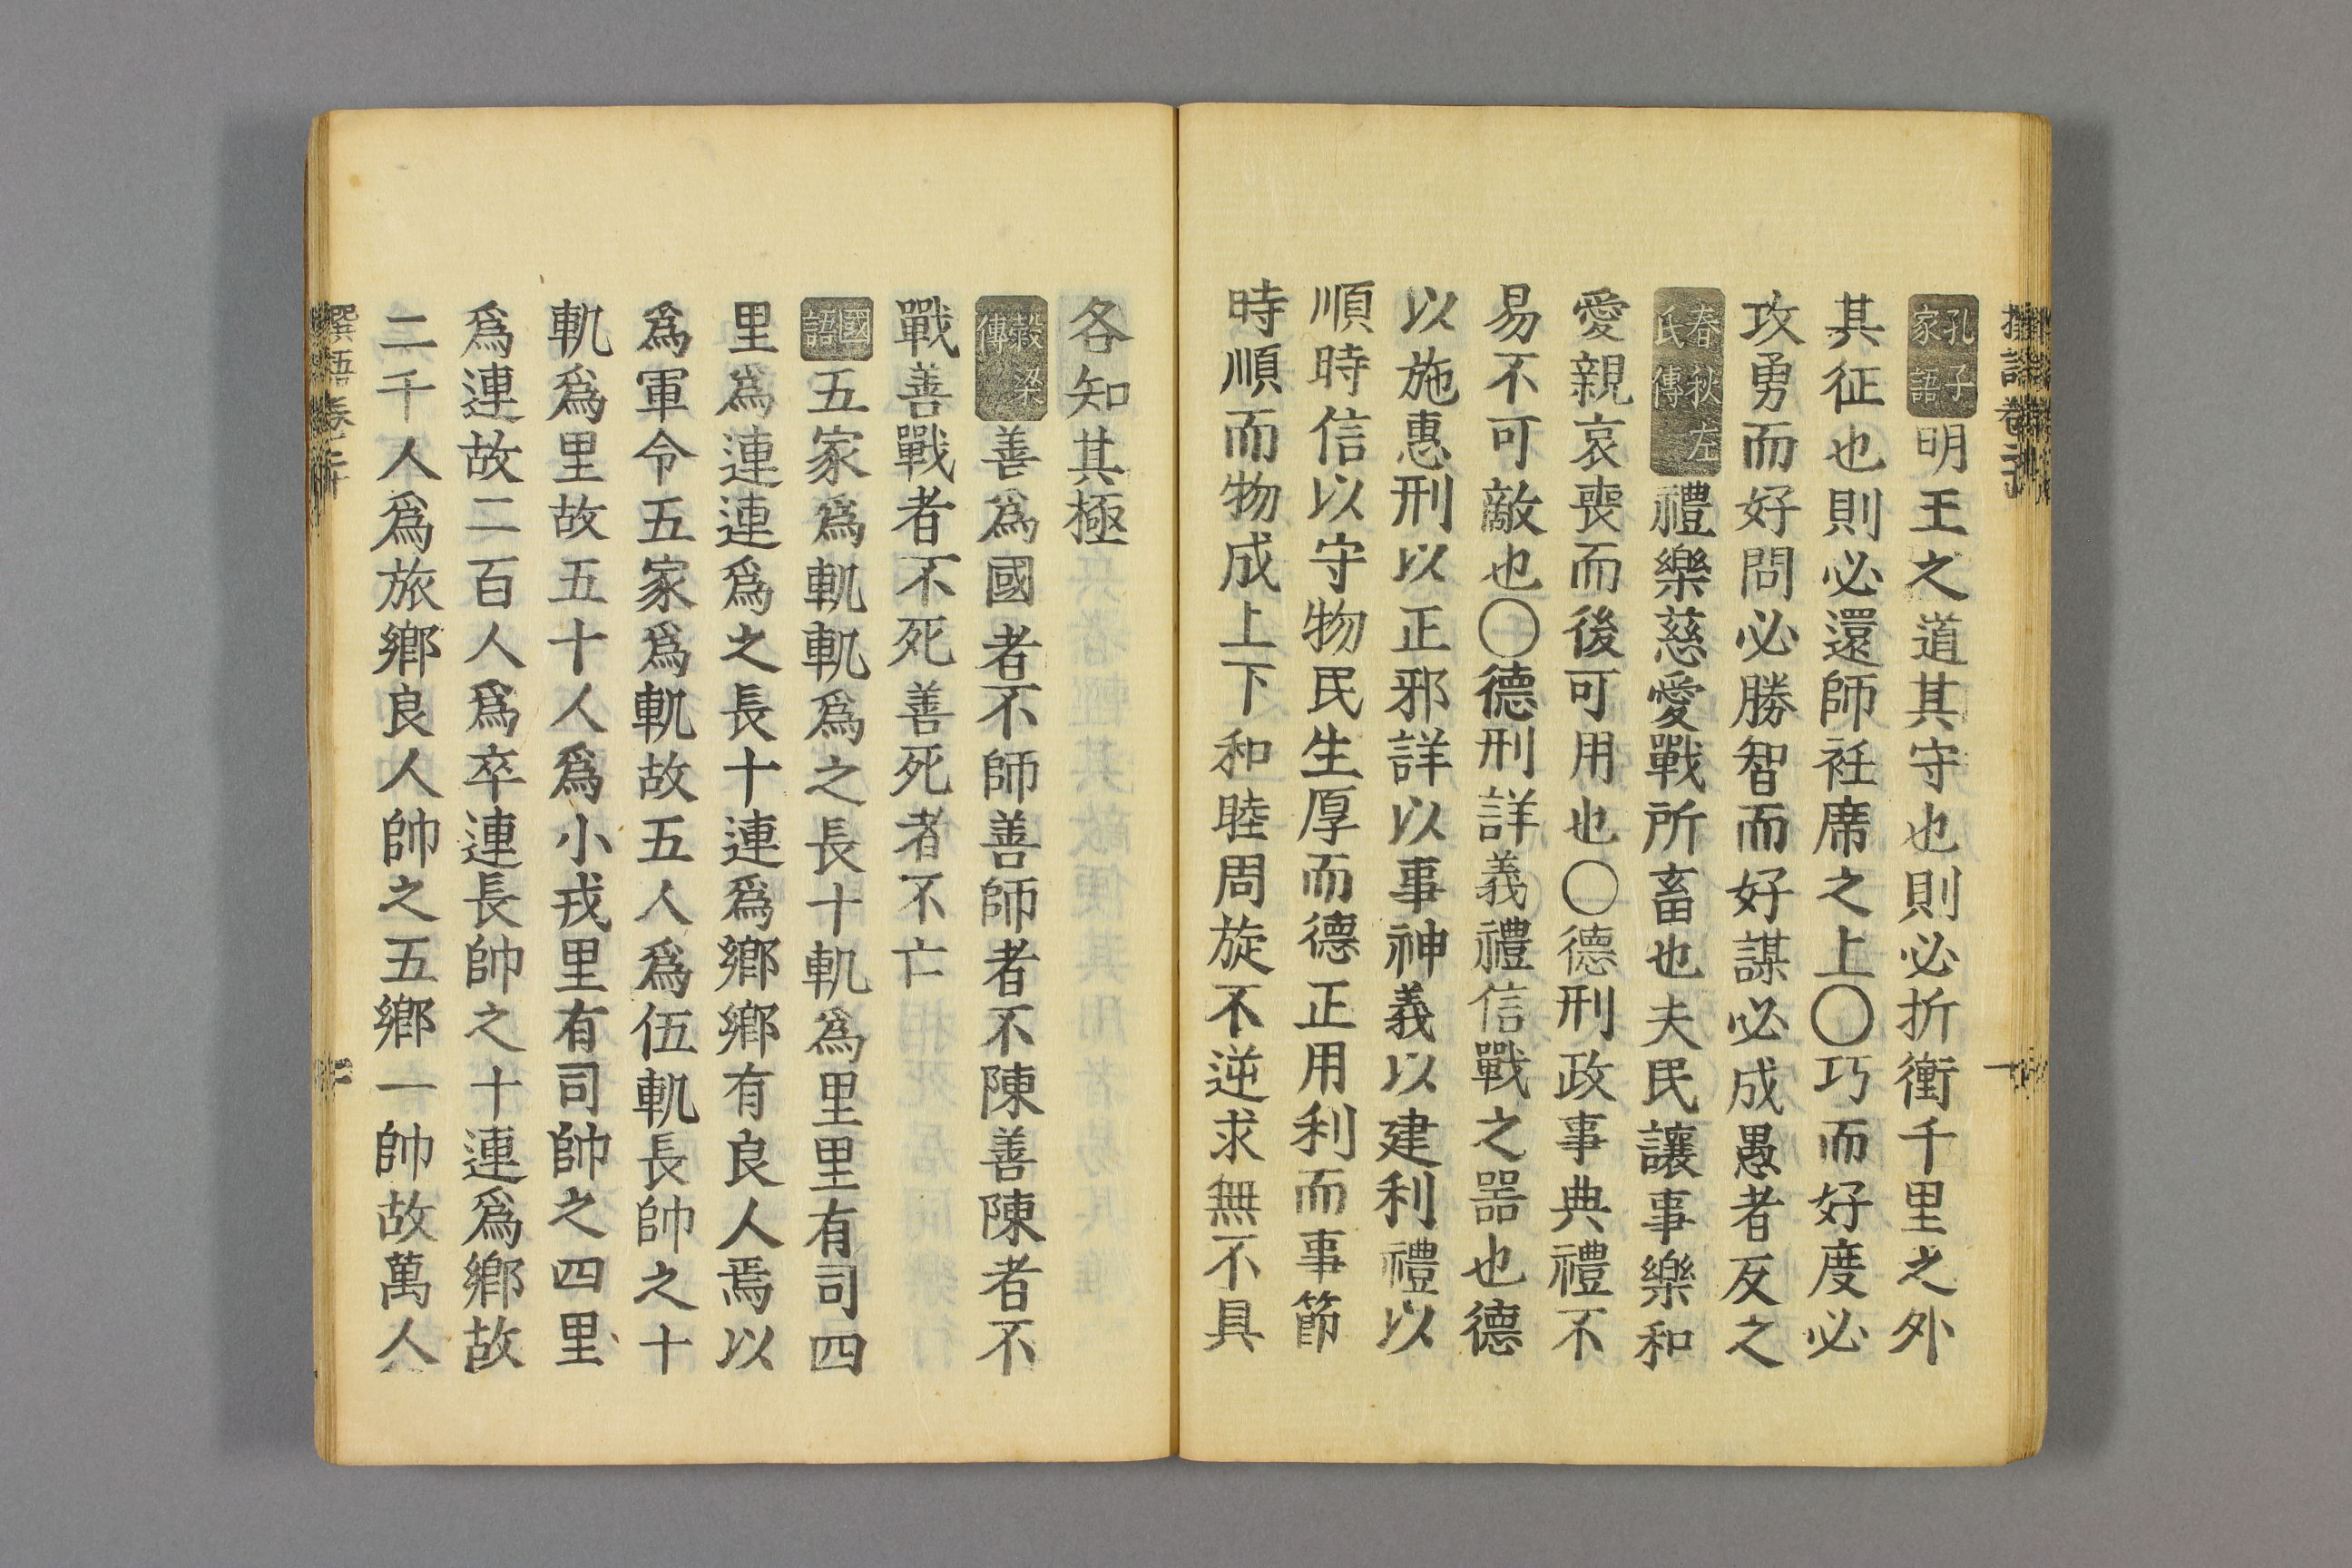 孔子家語明王之道其守也則必折衝千里之外
其征也則必還師衽席之上〇巧而好度必
攻勇而好問必勝智而好謀必成愚者反之
春秋左氏傳禮樂慈愛戰所畜也夫民讓事樂和
愛親哀喪而後可用也〇德刑政事典禮不
易不可敵也〇德刑詳義禮信戰之器也德
以施惠刑以正邪詳以事神義以建利禮以
順時信以守物民生厚而德正用利而事節
時順而物成上下和睦周旋不逆求無不具
各知其極
穀梁傳善為國者不師善師者不陳善陳者不
戰善戰者不死善死者不亡
國語五家為軌軌為之長十軌為里里有司四
里為連連為之長十連為鄉鄉有良人焉以
為軍令五家為軌故五人為伍軌長帥之十
軌為里故五十人為小戎里有司帥之四里
為連故二百人為卒連長帥之十連為鄉故
二千人為旅鄉良人帥之五鄉一帥故萬人